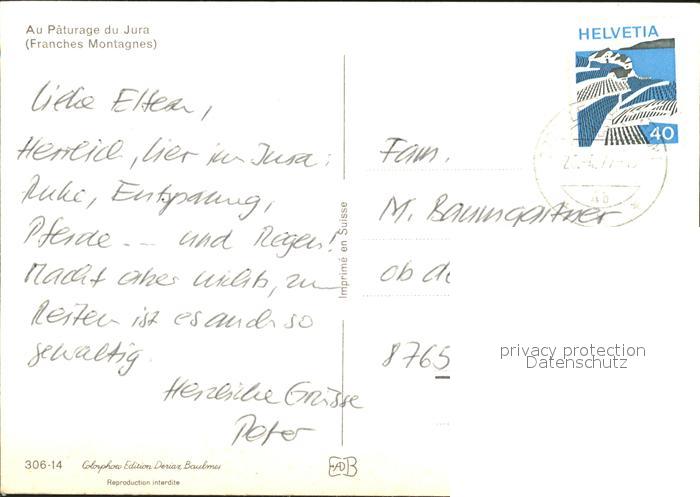 Au Pâturage du Jura
(Franches Montagnes)
Liebe Eltern,
Herrlich, hier im Jura:
Ruhe, Entspannung,
Pferde -- und Regen!
Macht aber nichts, zum
Reiten ist es auch so
gewaltig.
Herzliche Grüsse
Peter
306-14 Colorphoto Edition Deriaz, Baulmes
Reproduction interdite
Imprimé en Suisse
HELVETIA
40
Fam.
M. Baumgartner
ob de
8765
privacy protection
Datenschutz